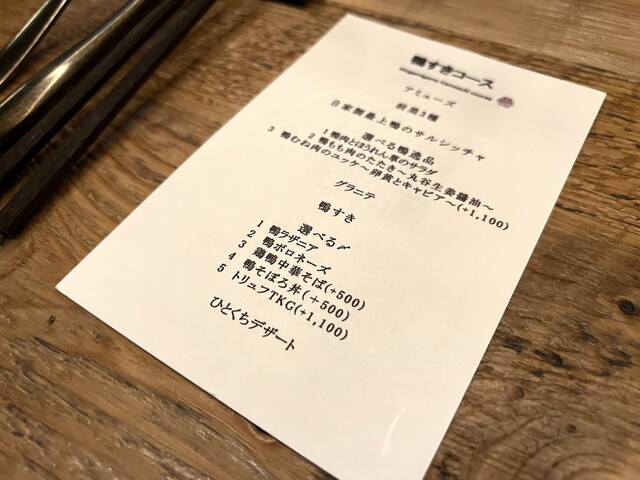 鴨すきコース
アミューズ
前菜3種
自家製最上鴨のサルシッチャ
選べる鴨逸品
1 鴨肉とほうれん草のサラダ
2 鴨もも肉のたたき～丸谷生姜醤油～
3 鴨むね肉のユッケ～卵黄とキャビア～(+1,100)
グラニテ
鴨すき
選べる〆
1 鴨ラザニア
2 鴨ボロネーズ
3 鶏鴨中華そば(+500)
4 鴨そぼろ丼(+500)
5 トリュフTKG(+1,100)
ひとくちデザート